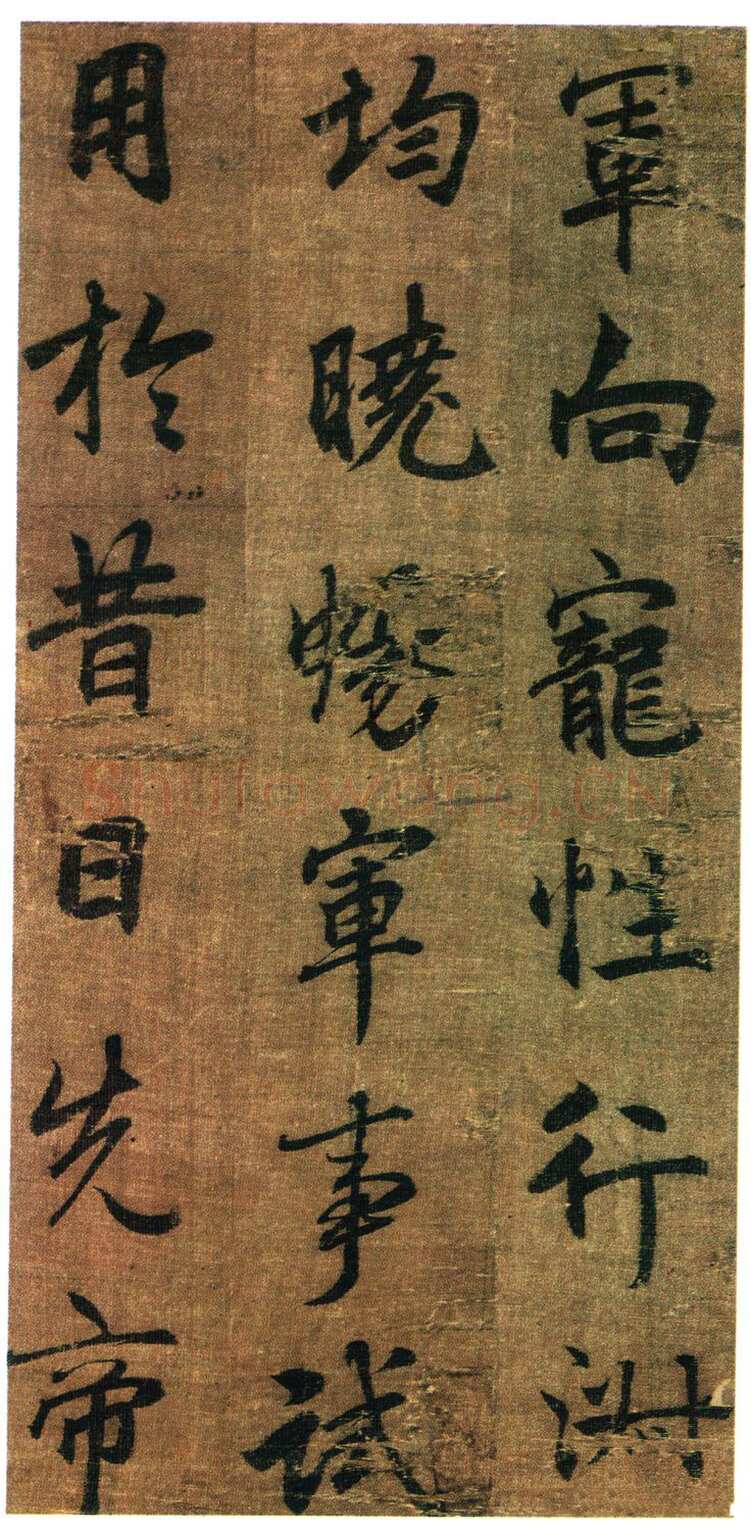 軍向寵性行淑
均曉暢軍事試
用於昔日先帝
shufawang.CN